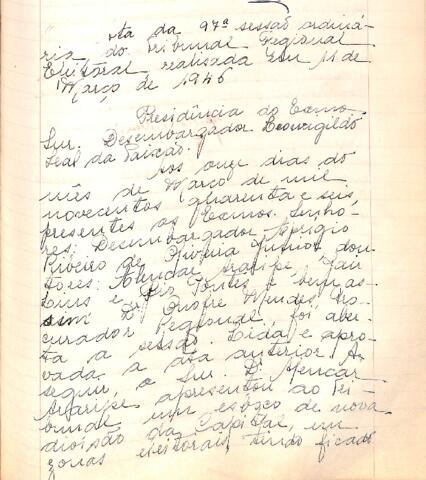 Ata da 97ª sessão ordiná-
ria do Tribunal Regional
Eleitoral realizada em 11 de
Março de 1946
Presidência do Exmo.
Snr. Desembargador Leovigildo
Leal da Paixão.
Aos onze dias do
mês de Março de mil
novecentos quarenta e seis,
presentes os Exmos. Senho-
res: Desembargador Aprigio
Ribeiro de Oliveira Junior, dou-
tores: Alencar Araripe, Jair
Lins e Fontes e bem as-
sim Dr. Onofre Mendes, Pro-
curador Regional, foi aber-
ta a sessão. Lida e apro-
vada a ata anterior. A
seguir, o Snr. D. Alencar
Araripe apresentou ao Tri-
bunal um esboço de nova
divisão da Capital, em
zonas eleitorais, tendo ficado